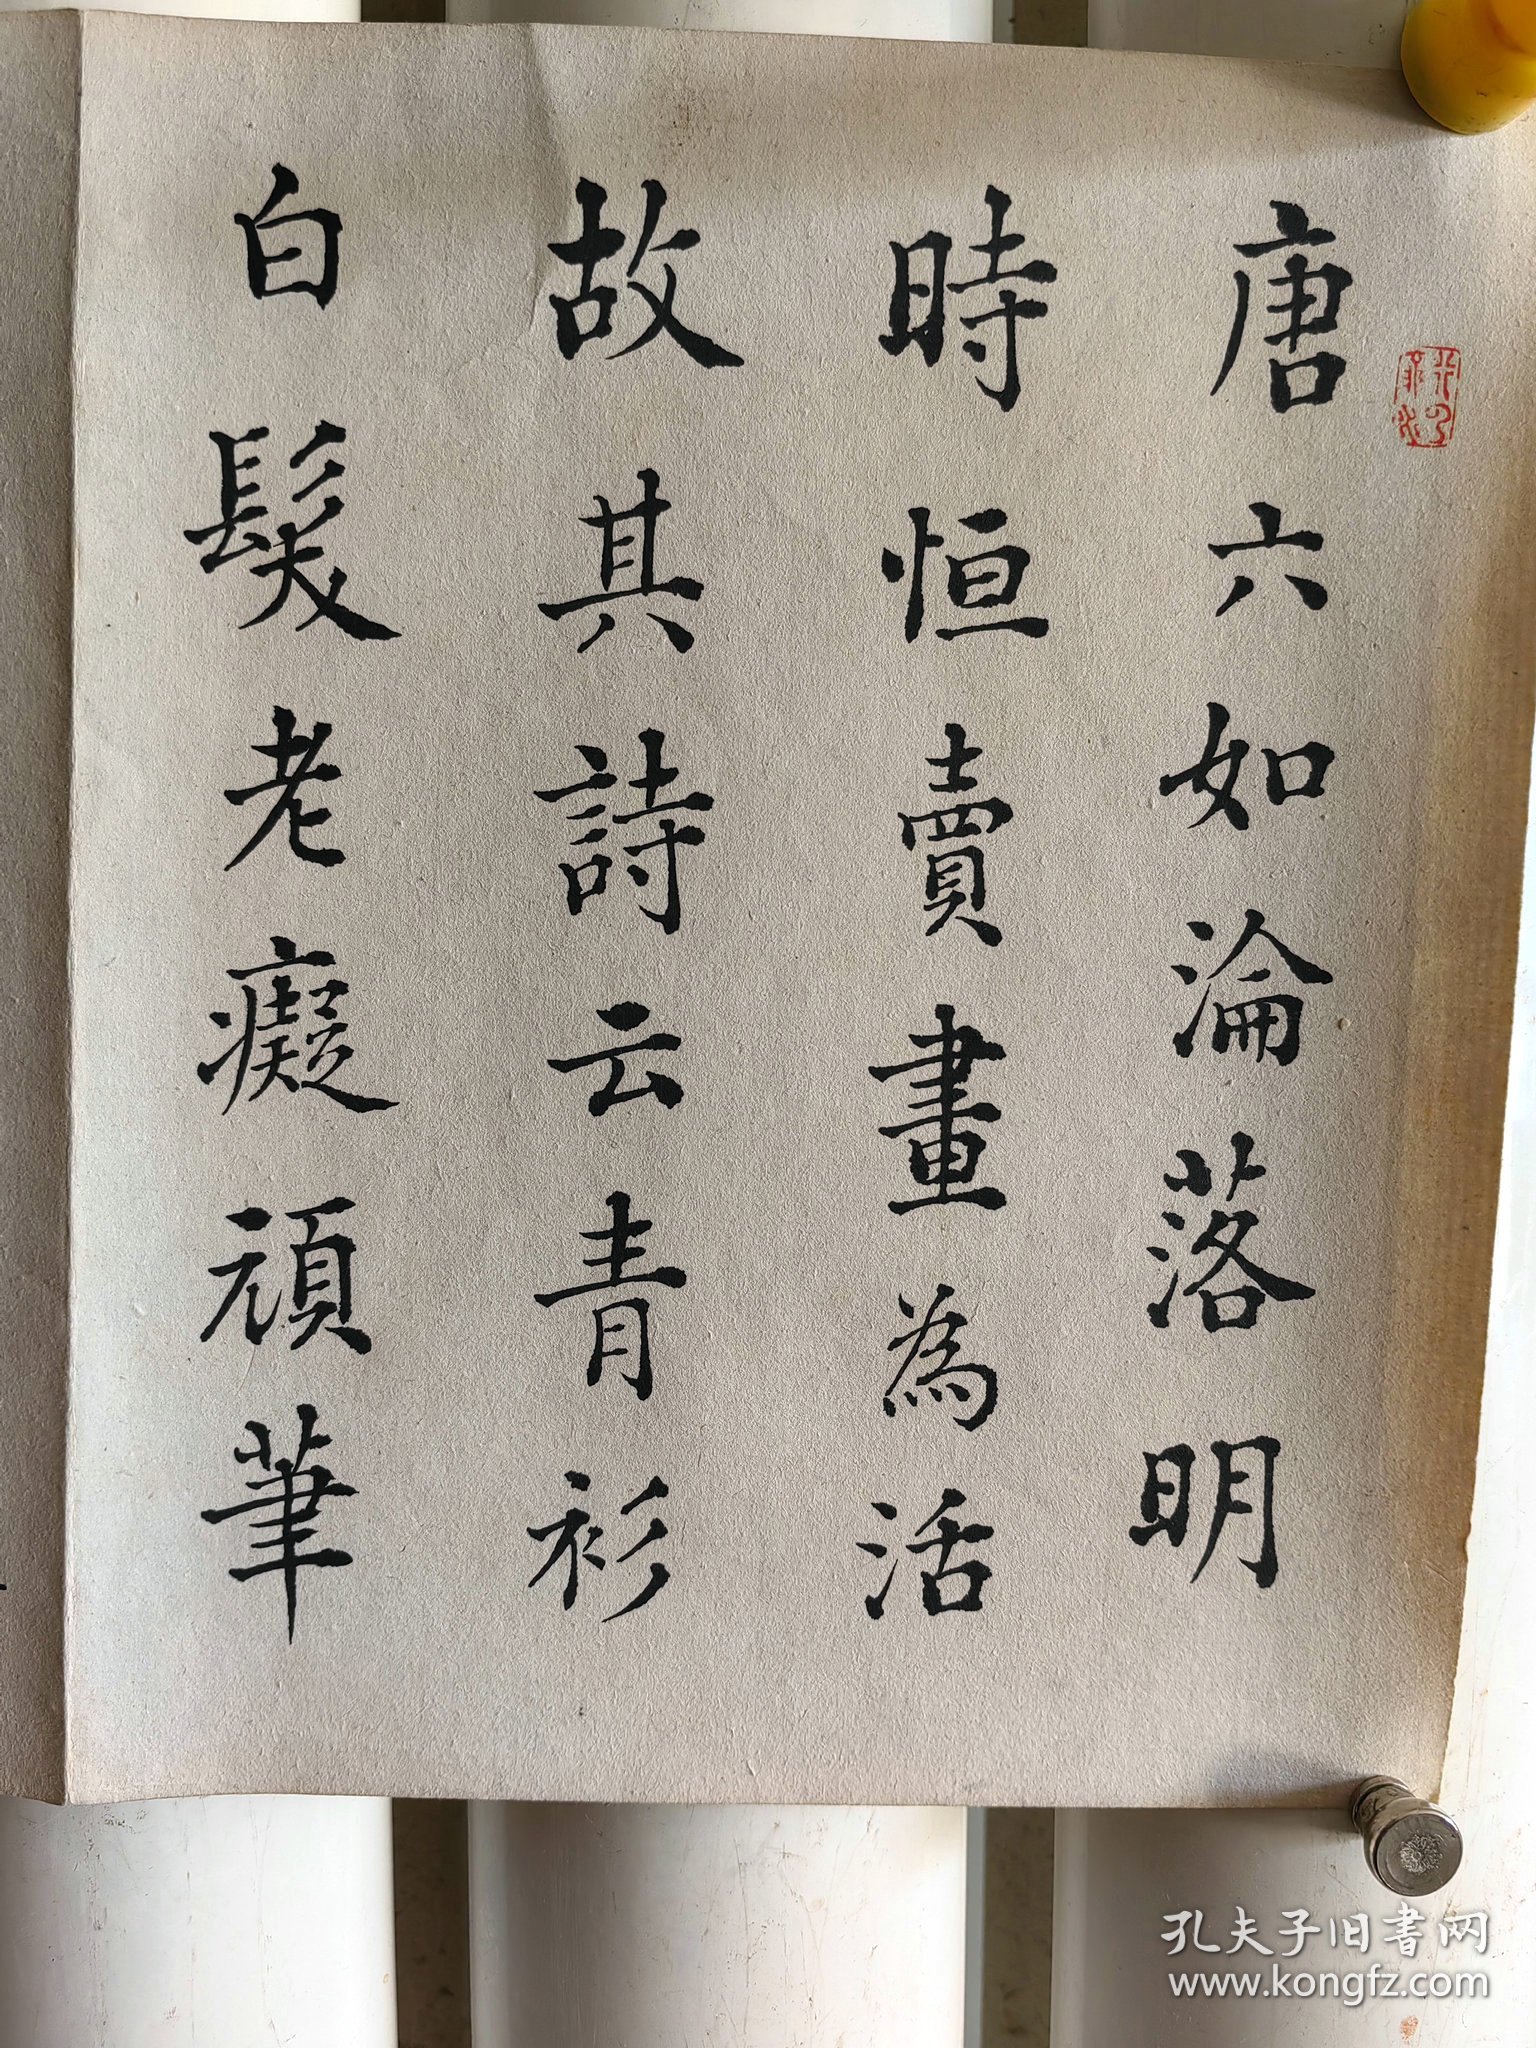 唐六如淪落明
時恒賣畫為活
故其詩云青衫
白髮老癡頑筆
孔夫子旧书网
www.kongfz.com